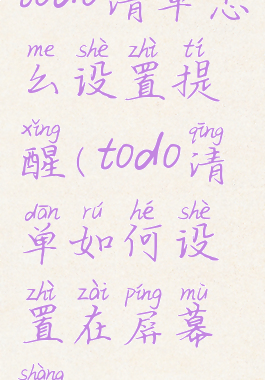 todo清单怎
me shè zhì tí
么设置提
xǐng qīng
醒(todo清
dān rú hé shè
单如何设
zhì zài píng mù
置在屏幕
shàng